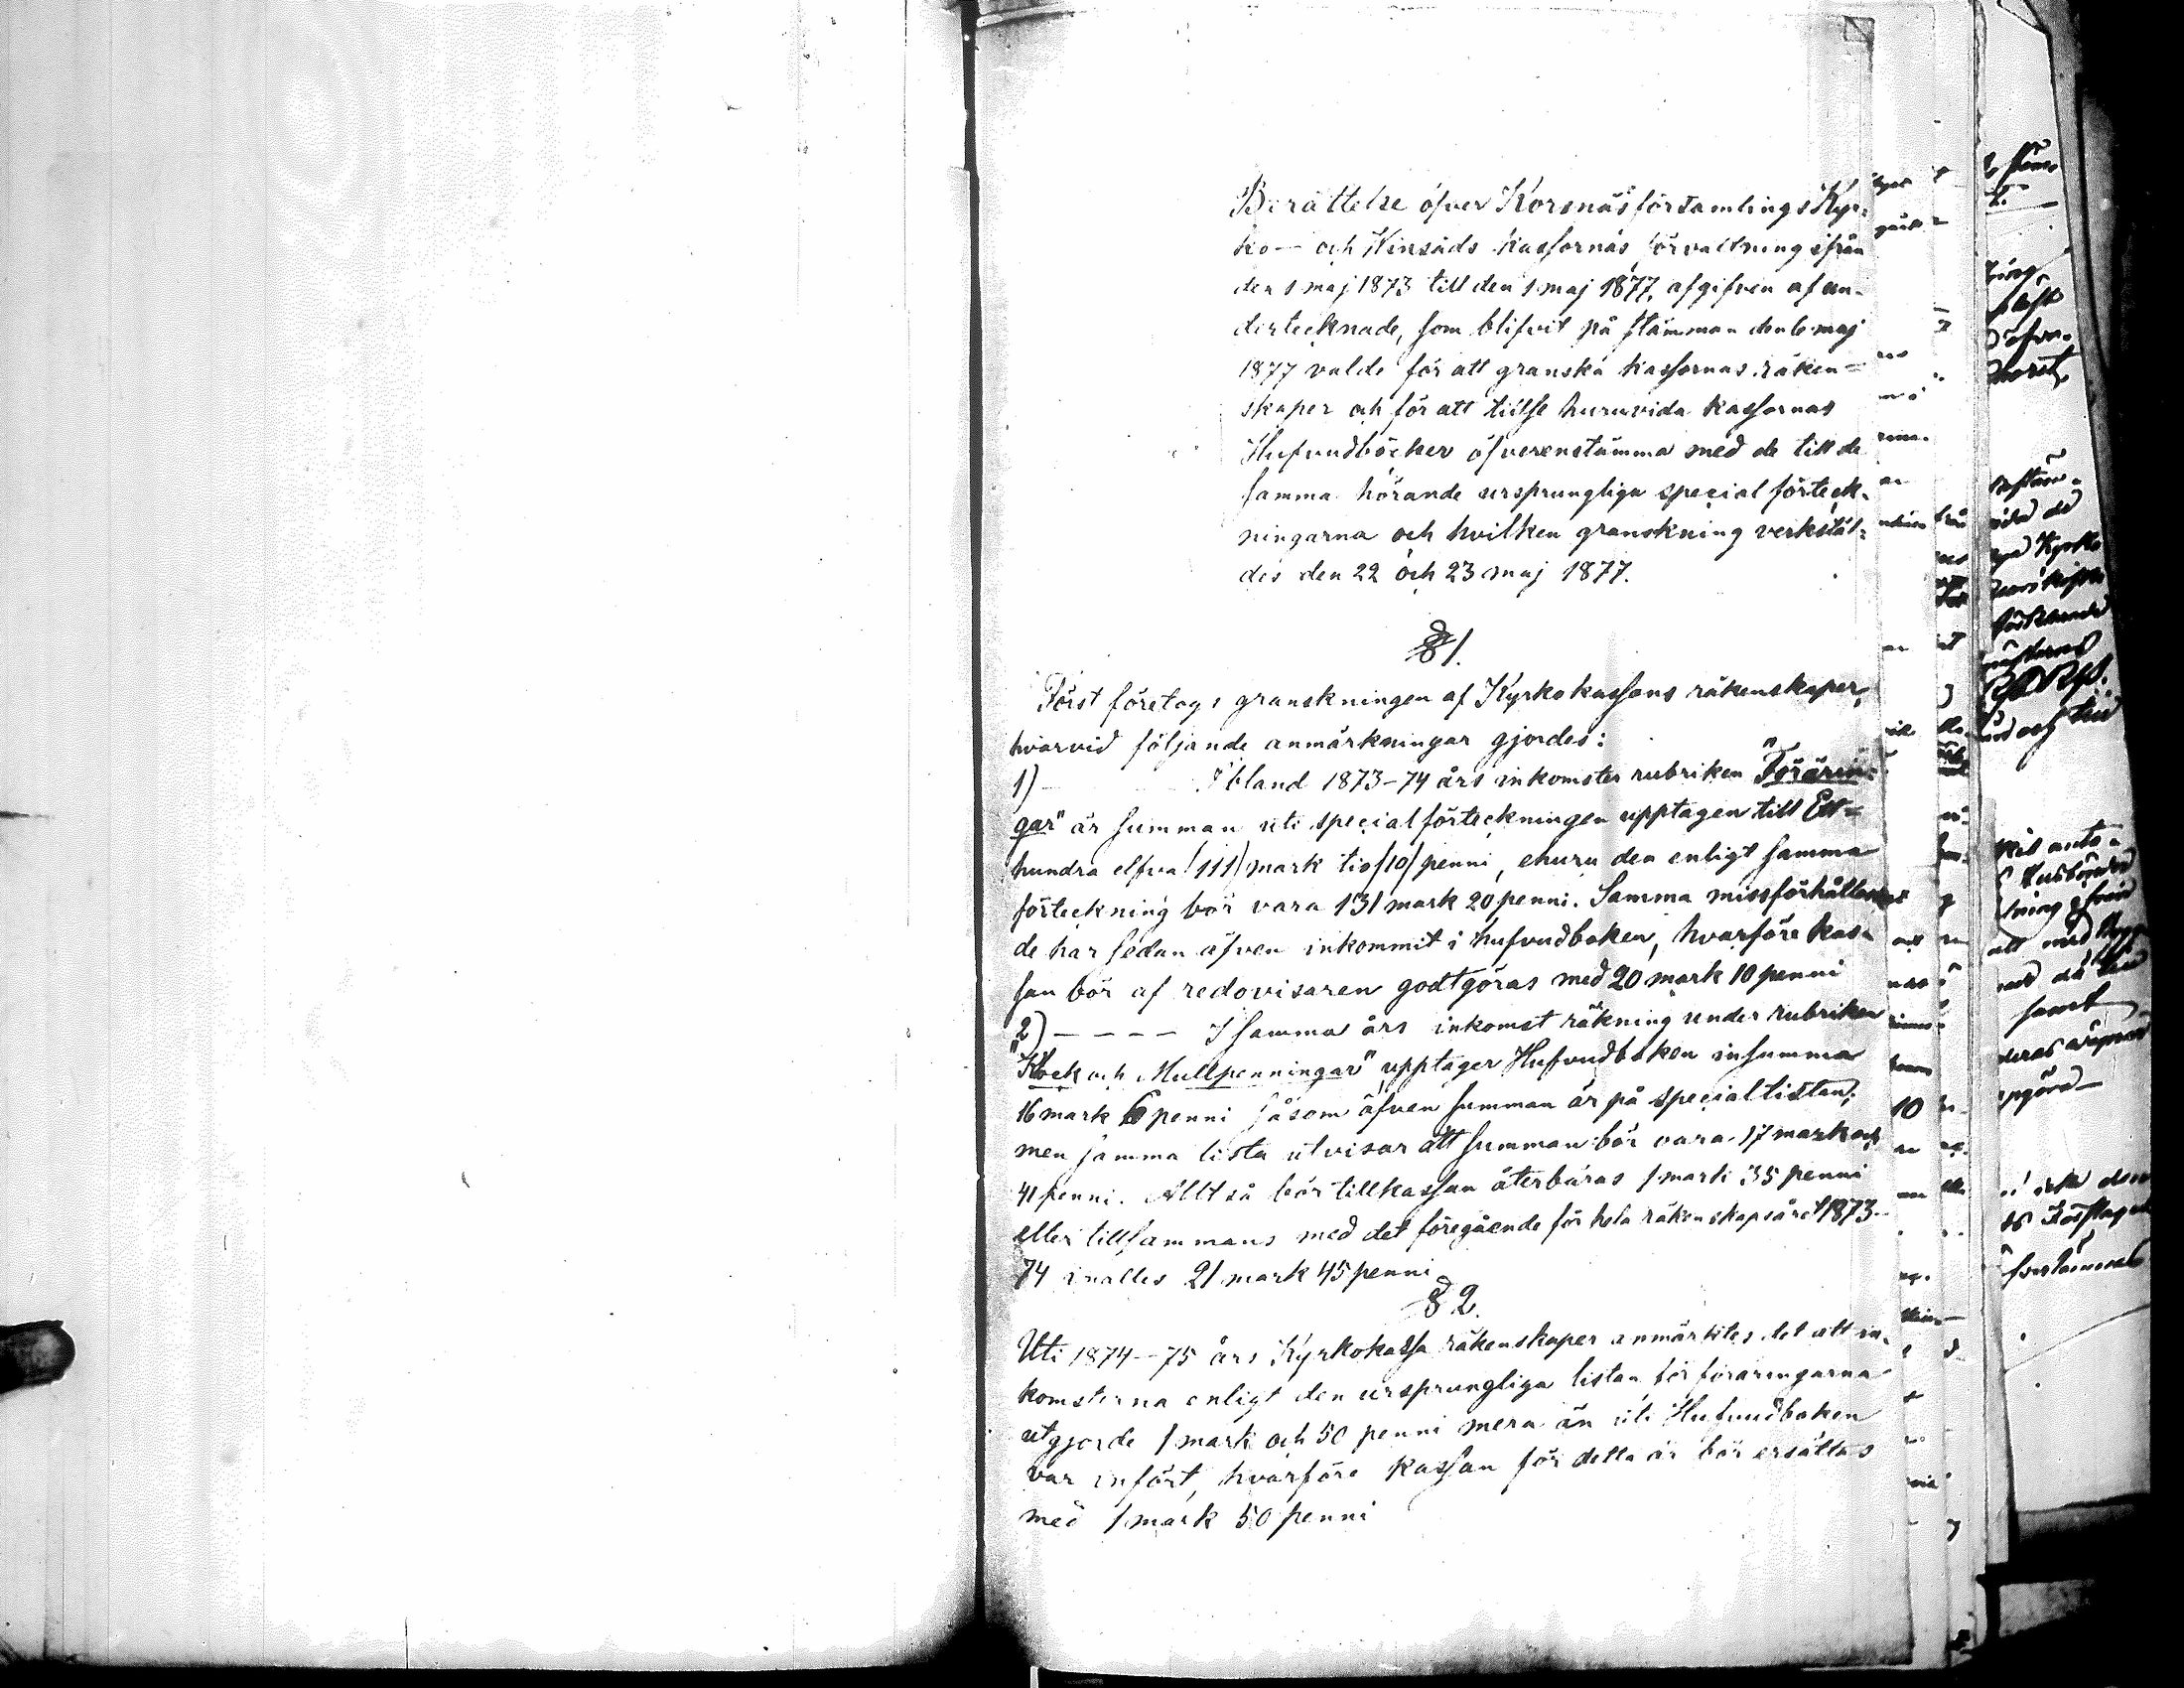 Berättelse öfver Korsnäs församlings Kyr-
ko- och Kinsåds kassornas förvaltning ifrån
den 1 maj 1873 till den 1 maj 1877, afgifven af un-
dertecknade, som blifvit på stämman den 6 maj
1877 valde för att granska kassornas räken=
skaper och för att tillse huruvida kassornas
Hufvudböcker öfverenstämma med de till de
samma hörande ursprungliga special förteck-
ningarna och hvilken granskning verkstäl-
des den 22 och 23 maj 1877.
§ 1.
Först företogs granskningen af Kyrkokassans räkenskaper,
hvarvid följande anmärkningar gjordes:
1) - Ibland 1873-74 års inkomster rubriken "Förärin-
gar" är summan uti specialförteckningen upptagen till Ett-
hundra elfva (111) mark tio/10/ penni, ehuru den enligt samma
förteckning bör vara 131 mark 20 penni. Samma missförhållan-
de har sedan äfven inkommit i hufvudboken, hvarföre kas-
san bör af redovisaren godtgöras med 20 mark 10 penni
2) - - - - I samma års inkomst räkning under rubriken
"Kock och Mullpenningar" upptager Hufvudboken insumma
16 mark 6 penni såsom äfven summan är på speciallistan;
men samma lista utvisar att summan bör vara 17 mark och
41 penni. Alltså bör till kassan återbäras 1 mark 35 penni
eller tillsammans med det föregående för hela räkenskapsåret 1873-
74 inalles 21 mark 45 penni
§ 2.
Uti 1874--75 års Kyrkokassa räkenskaper anmärktes det att in-
komsterna enligt den ursprungliga listan för föräringarna
utgjorde 1 mark och 50 penni mera än uti Hufvudboken
var infört, hvarföre kassan för detta år bör ersättas
med 1 mark 50 penni